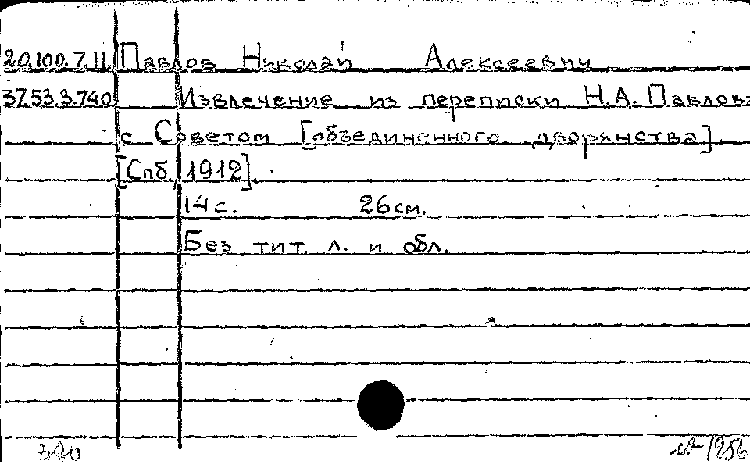 20.100.7.11 Павлов Николай Алексеевич
37.53.3.740 Извлечение из переписки Н.А. Павлова
с Советом [объединенного дворянства]
[Спб, 1912].
14 с. 26 см.
Без тит. л. и обл.